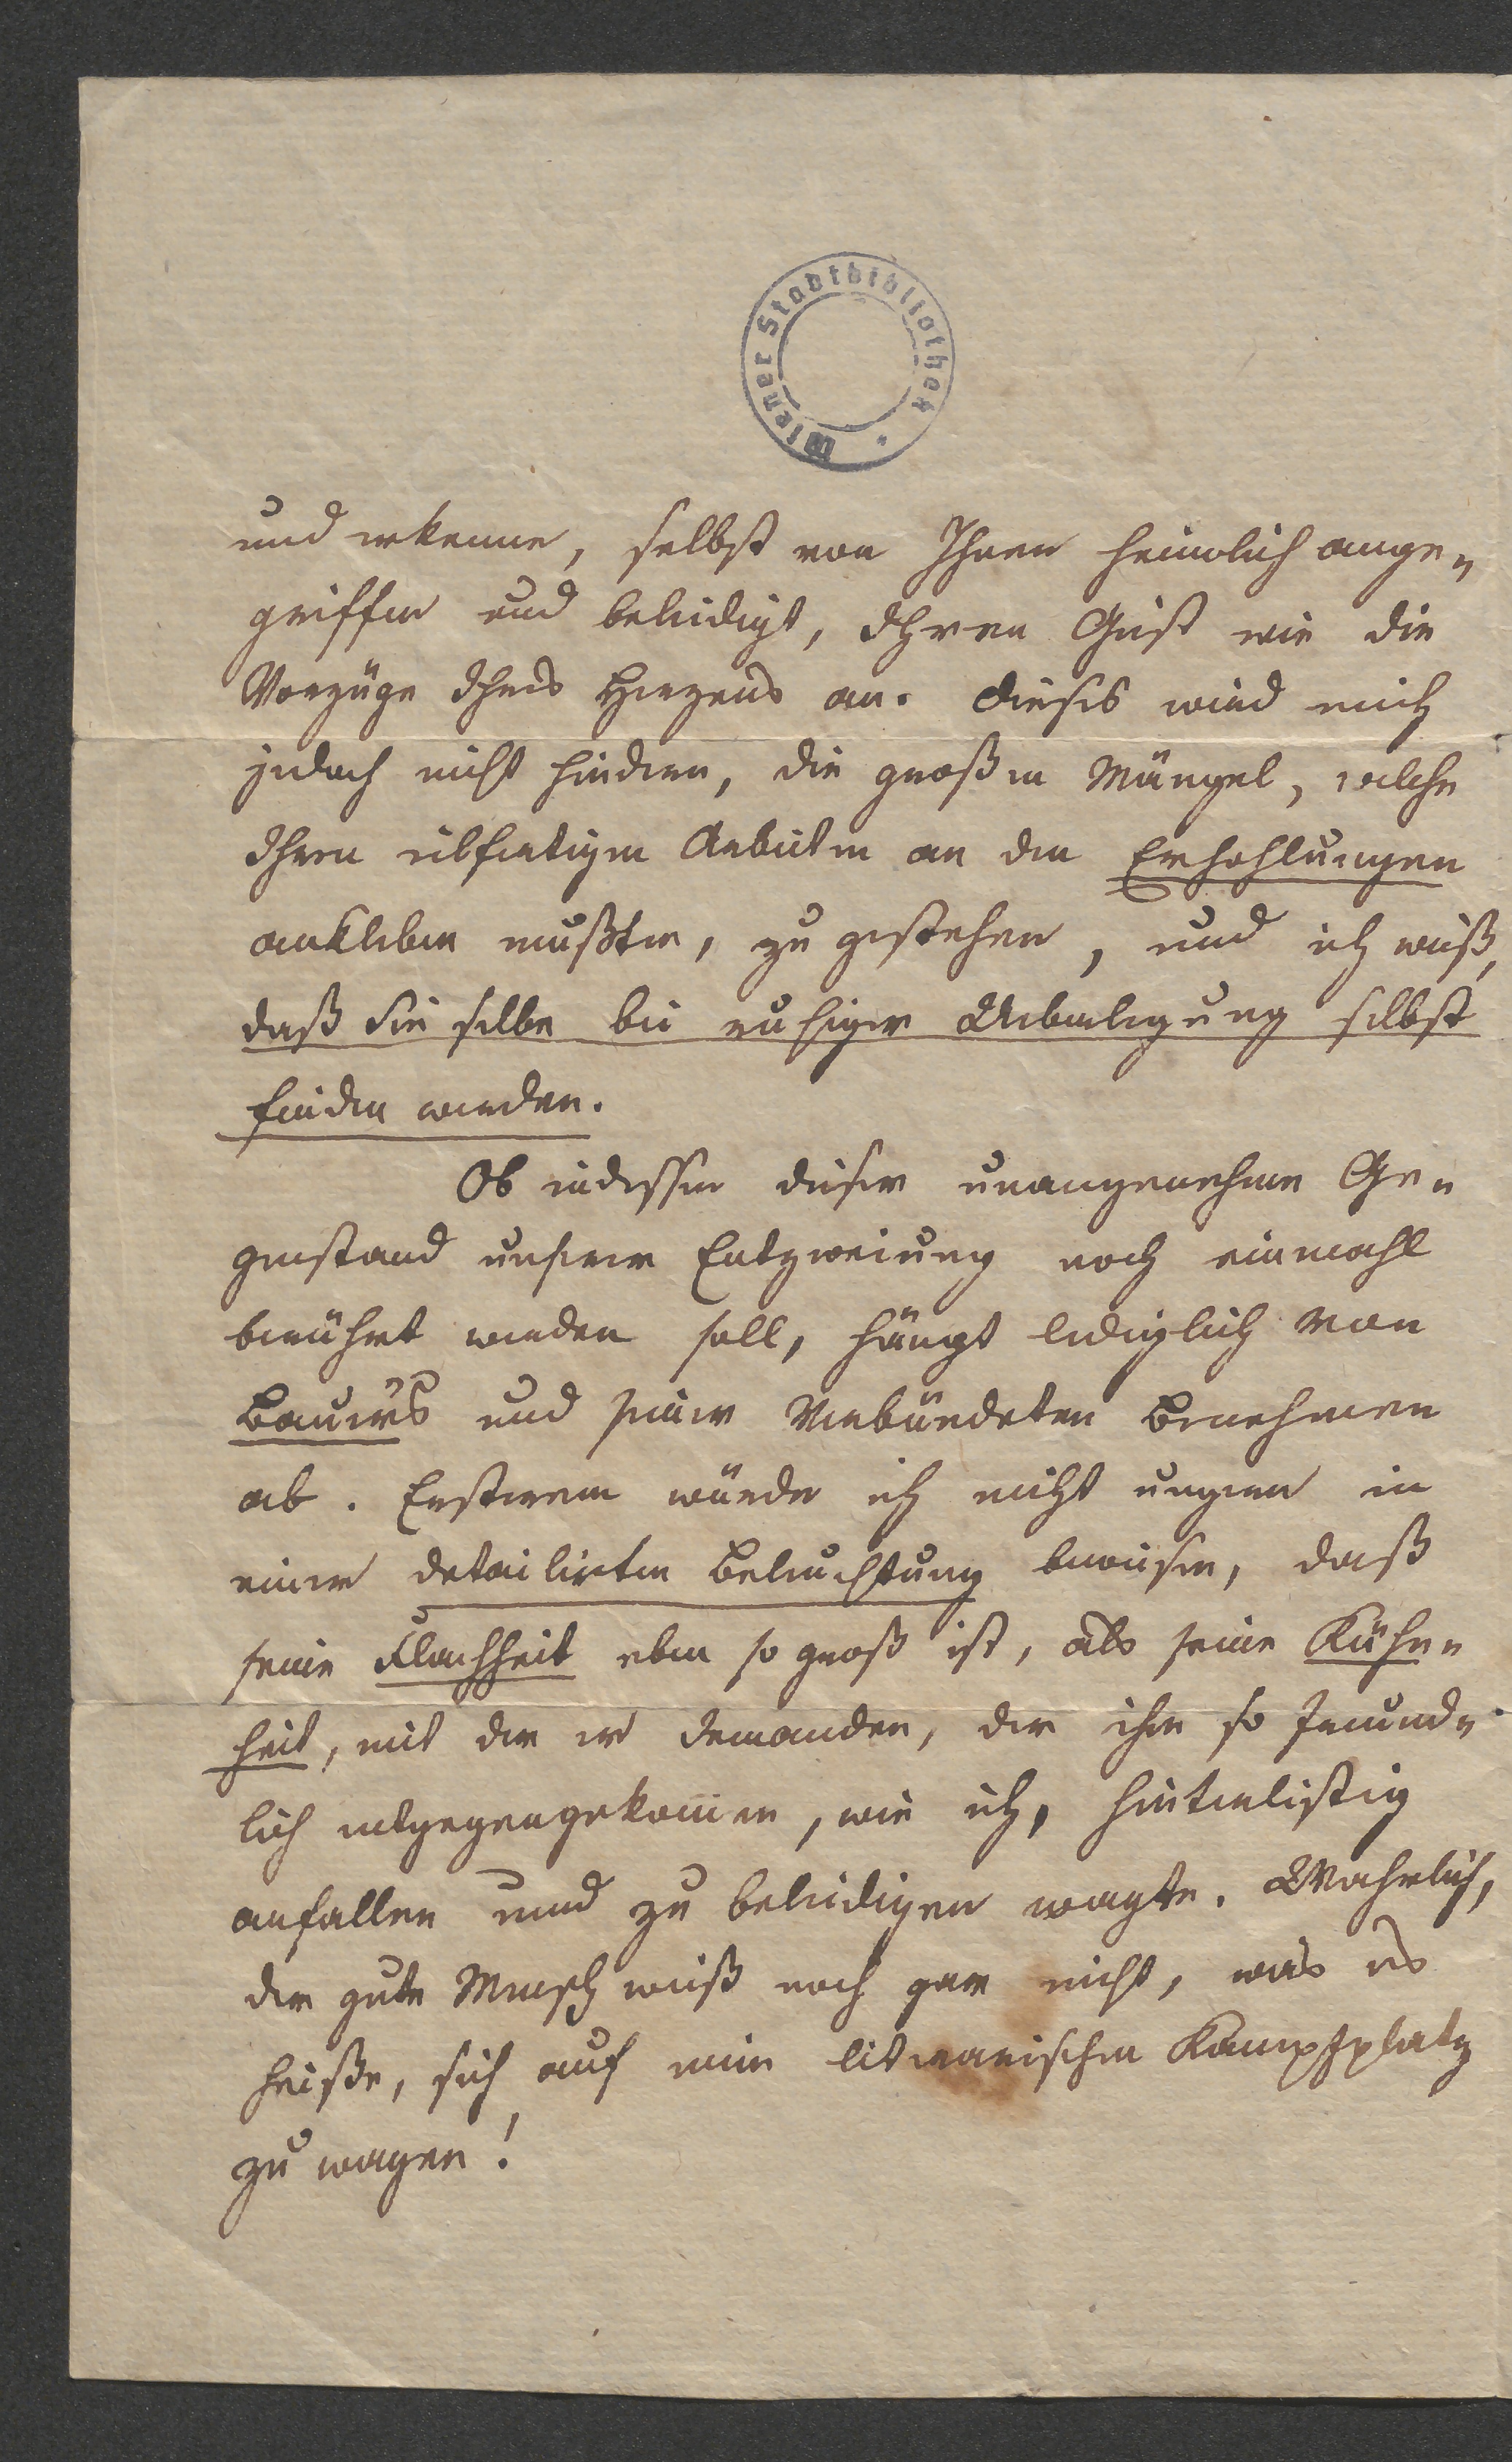 Wiener Stadtbibliothek
und erkenne, selbst von Ihnen heimlich ange-
griffen und beleidigt, Ihren Geist wie die
Vorzüge Ihres Herzens an. Dieses wird mich
jedoch nicht hindern, die großen Mängel, welche
Ihren eilfertigen Arbeiten an den Erhohlungen
ankleben mußten, zu gestehen, und ich weiß,
daß Sie selbe bei ruhiger Ueberlegung selbst
finden werden.
Ob indessen dieser unangenehme Ge-
genstand unserer Entzweiung noch einmahl
berührt werden soll, hängt lediglich von
Bäuerles und seiner Verbündeten Benehmen
ab. Ersterem würde ich nicht ungern in
einer detailirten Beleuchtung beweisen, daß
seine Flachheit eben so groß ist, als seine Kühn-
heit, mit der er Jemanden, der ihm so freund-
lich entgegengekommen, wie ich, hinterlistig
anfallen und zu beleidigen wagte. Wahrlich,
der gute Mensch weiß noch gar nicht, was es
heiße, sich auf einen literarischen Kampfplatz
zu wagen!